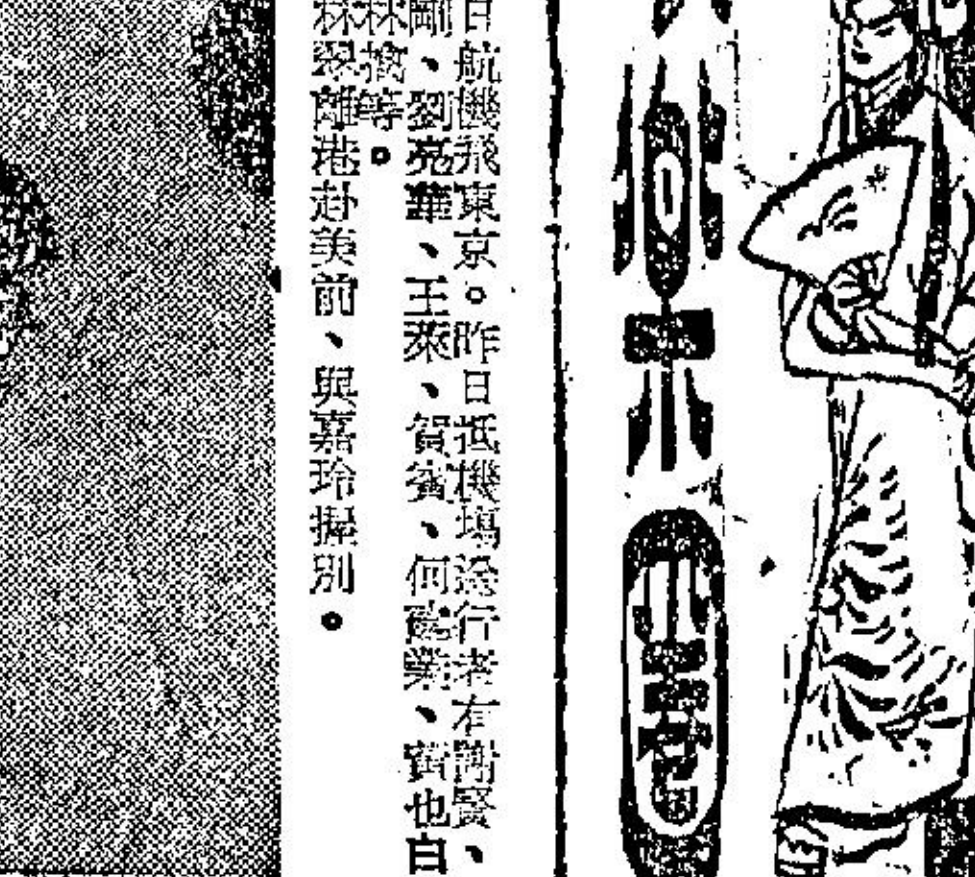 日航機飛東京。昨日抵機場送行者有謝賢、
剛、劉亮華、王萊、賀賓、何 業、黃也白
林 等。
林翠離港赴美前、與嘉玲握別。